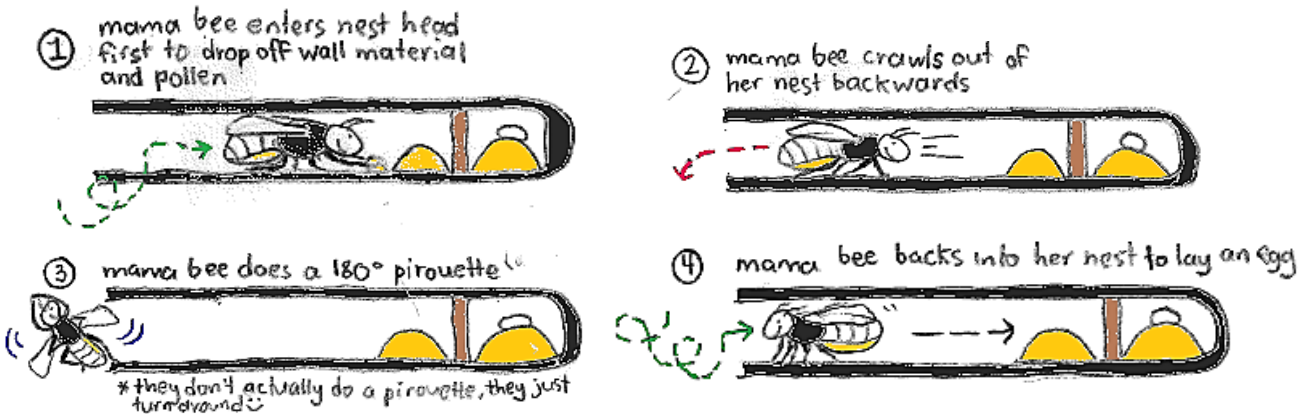 1 mama bee enters nest head
first to drop off wall material
and pollen
2 mama bee crawls out of
her nest backwards
3 mama bee does a 180° pirouette
*they don't actually do a pirouette, they just
turn around
4 mama bee backs into her nest to lay an egg